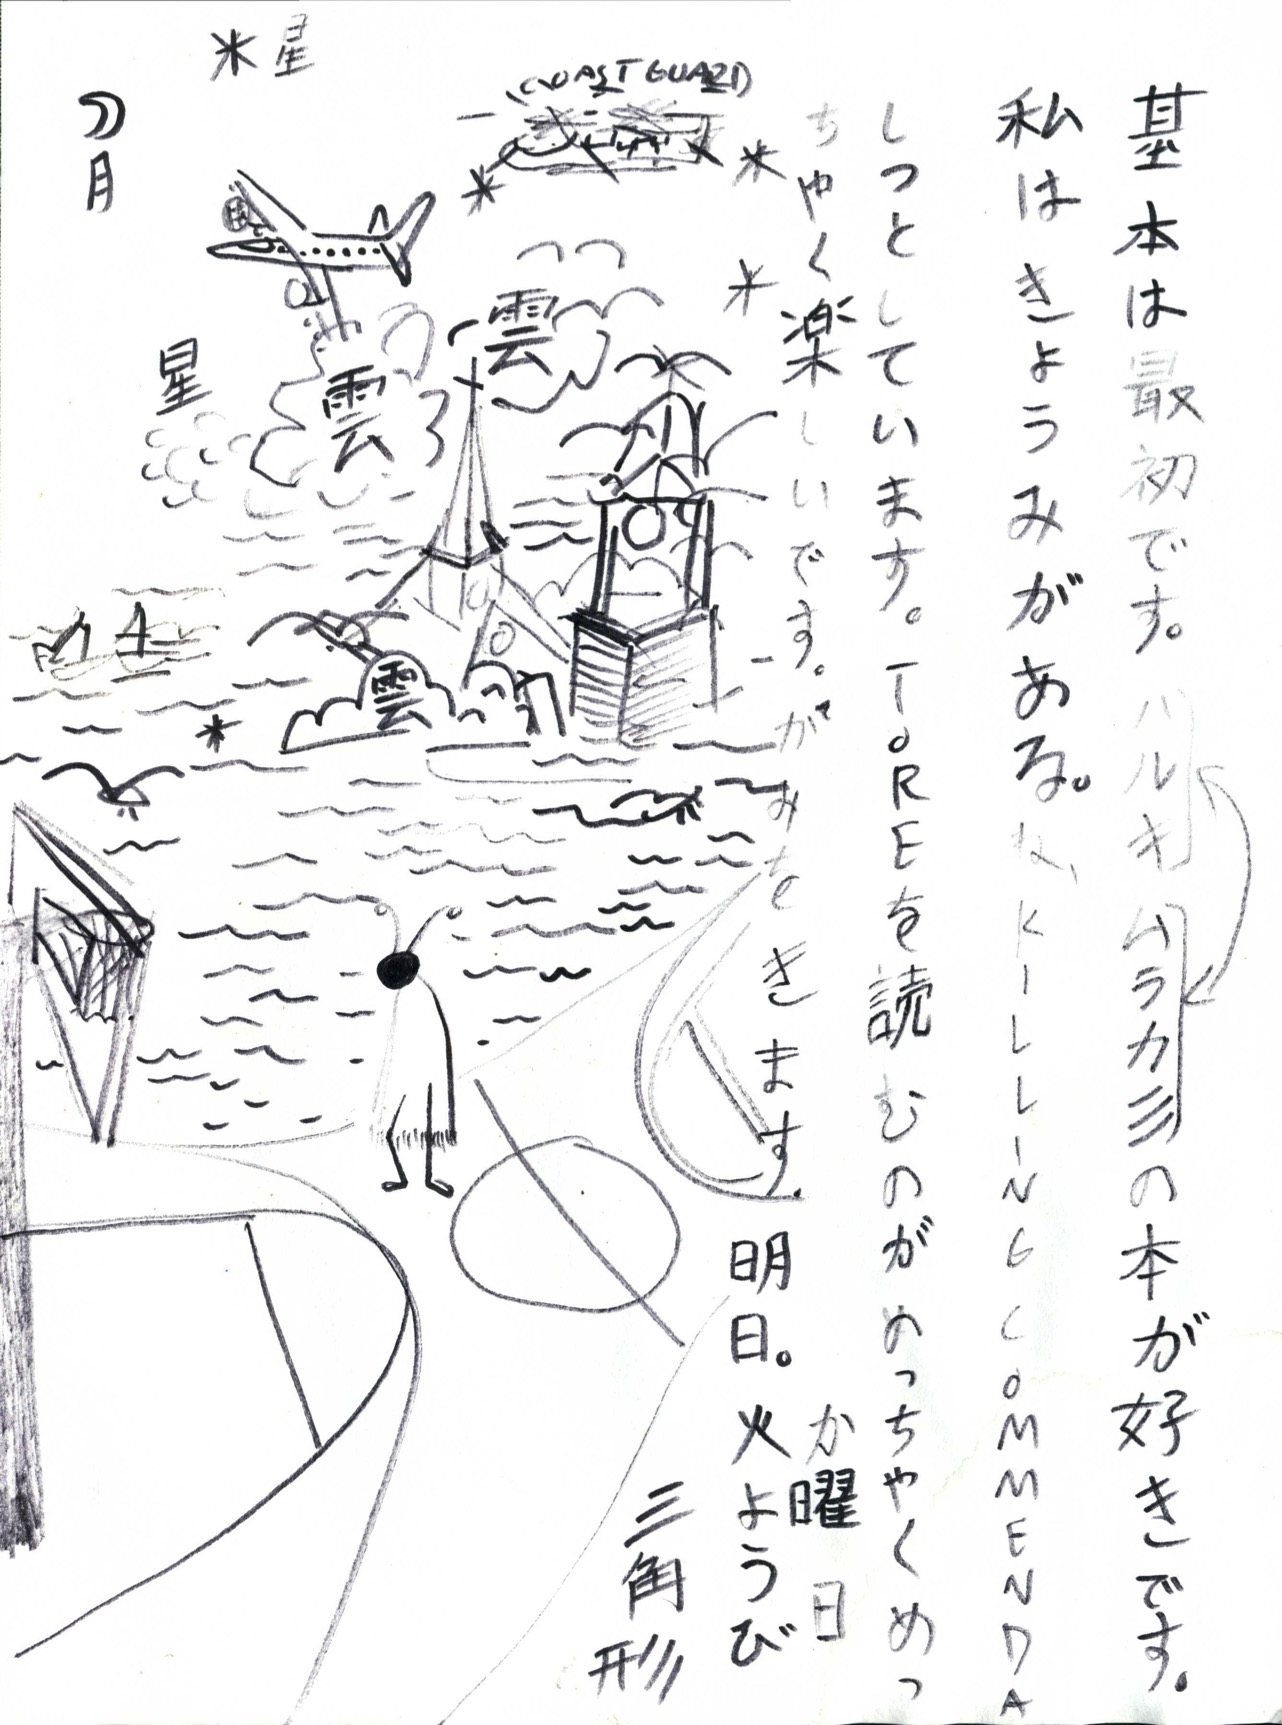 基本は最初です。ハルキムラカミの本が好きです。
私はきょうみがある。な、KILLING COMMENDA
しつとしています。TOREを読むのがめっちゃくめっ
ちゃく楽しいです。がみをきます.
か曜日
明日。火ようび
三角形
COAST GUARD
星
月
雲
雲
星
雲